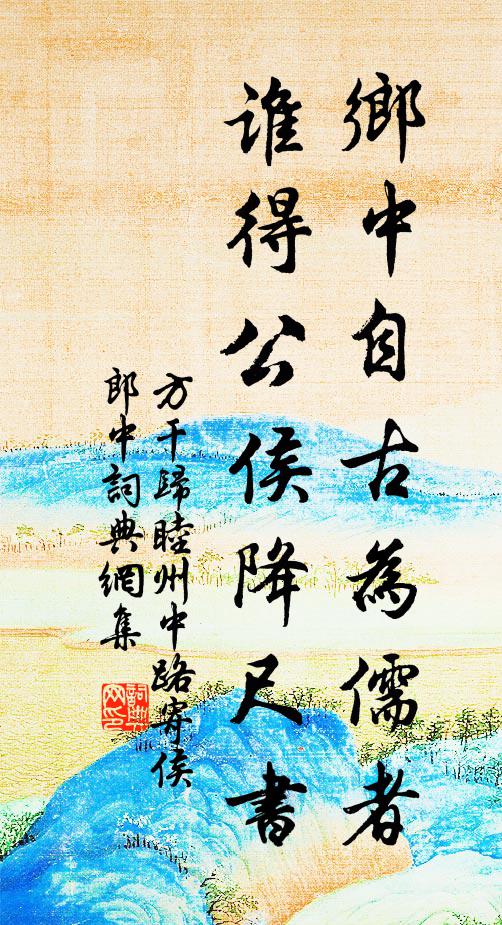 鄉中自古為儒者
誰得公侯降尺書
方干歸睦州中路寄侯
郎中詞典網集
詞典网印